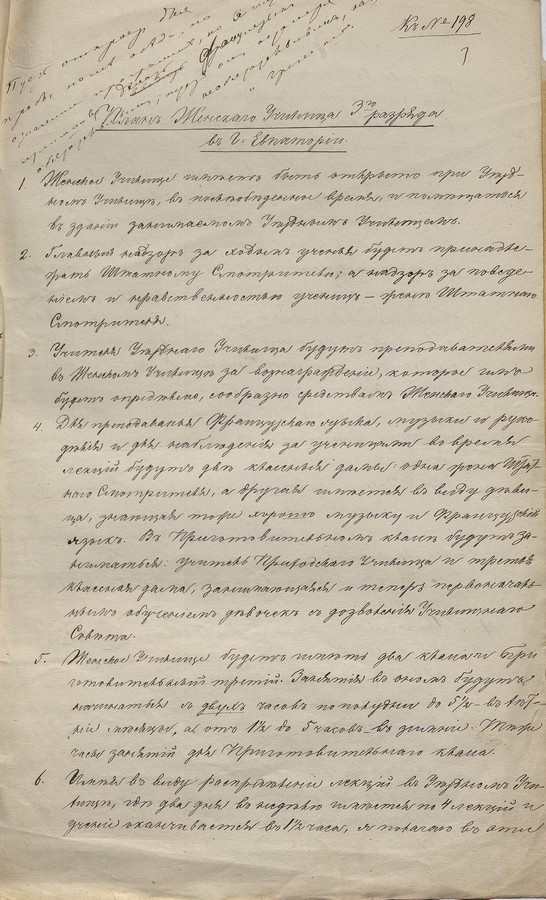 Къ № 198
Пусть откроет
Планъ Женскаго Училища 3го разряда
въ г. Евпаторіи.
1. Женское Училище имѣетъ быть открыто при Уѣзд-
номъ Училищѣ, въ послѣобѣденное время, и помѣщаться
въ зданіи занимаемомъ Уѣзднымъ Училищемъ.
2. Главный надзоръ за ходомъ ученья будетъ принадле-
жать Штатному Смотрителю; а надзоръ за поведе-
ніемъ и нравственностью ученицъ – женѣ Штатнаго
Смотрителя.
3. Учителя Уѣзднаго Училища будутъ преподавателями
въ Женскомъ Училищѣ за вознагражденіе, которое имъ
будетъ опредѣлено, сообразно средствамъ Женскаго Училища.
4. Для преподаванья Французскаго языка, музыки и руко-
дѣлія и для наблюденія за ученицами во время
лекцій будутъ двѣ классныя дамы: одна жена Штат-
наго Смотрителя, а другая имѣется въ виду дѣви-
ца, знающая тоже хорошо музыку и Французскій
языкъ. Въ Приготовительномъ классѣ будутъ за-
ниматься: учитель Приходскаго Училища и третья
классная дама, занимающаяся и теперь первоначаль-
нымъ обученіемъ дѣвочекъ съ дозволенія Училищнаго
Совѣта.
5. Женское Училище будетъ имѣть два класса и При-
готовительный третій. Занятія въ ономъ будутъ
начинаться съ двухъ часовъ пополудни до 5½ – въ лѣт-
ніе мѣсяцы, а отъ 1½ до 5 часовъ – въ зимніе. Тѣ же
часы занятій для Приготовительнаго класса.
6. Имѣя въ виду распредѣленіе лекцій въ Уѣздномъ Учи-
лищѣ, гдѣ два дня въ недѣлю имѣется по 4 лекціи и
ученіе оканчивается въ 1½ часа, я полагаю въ эти